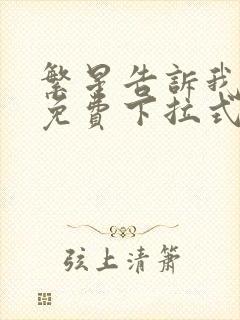 繁星告訴我
免費下拉式
弦上清簫